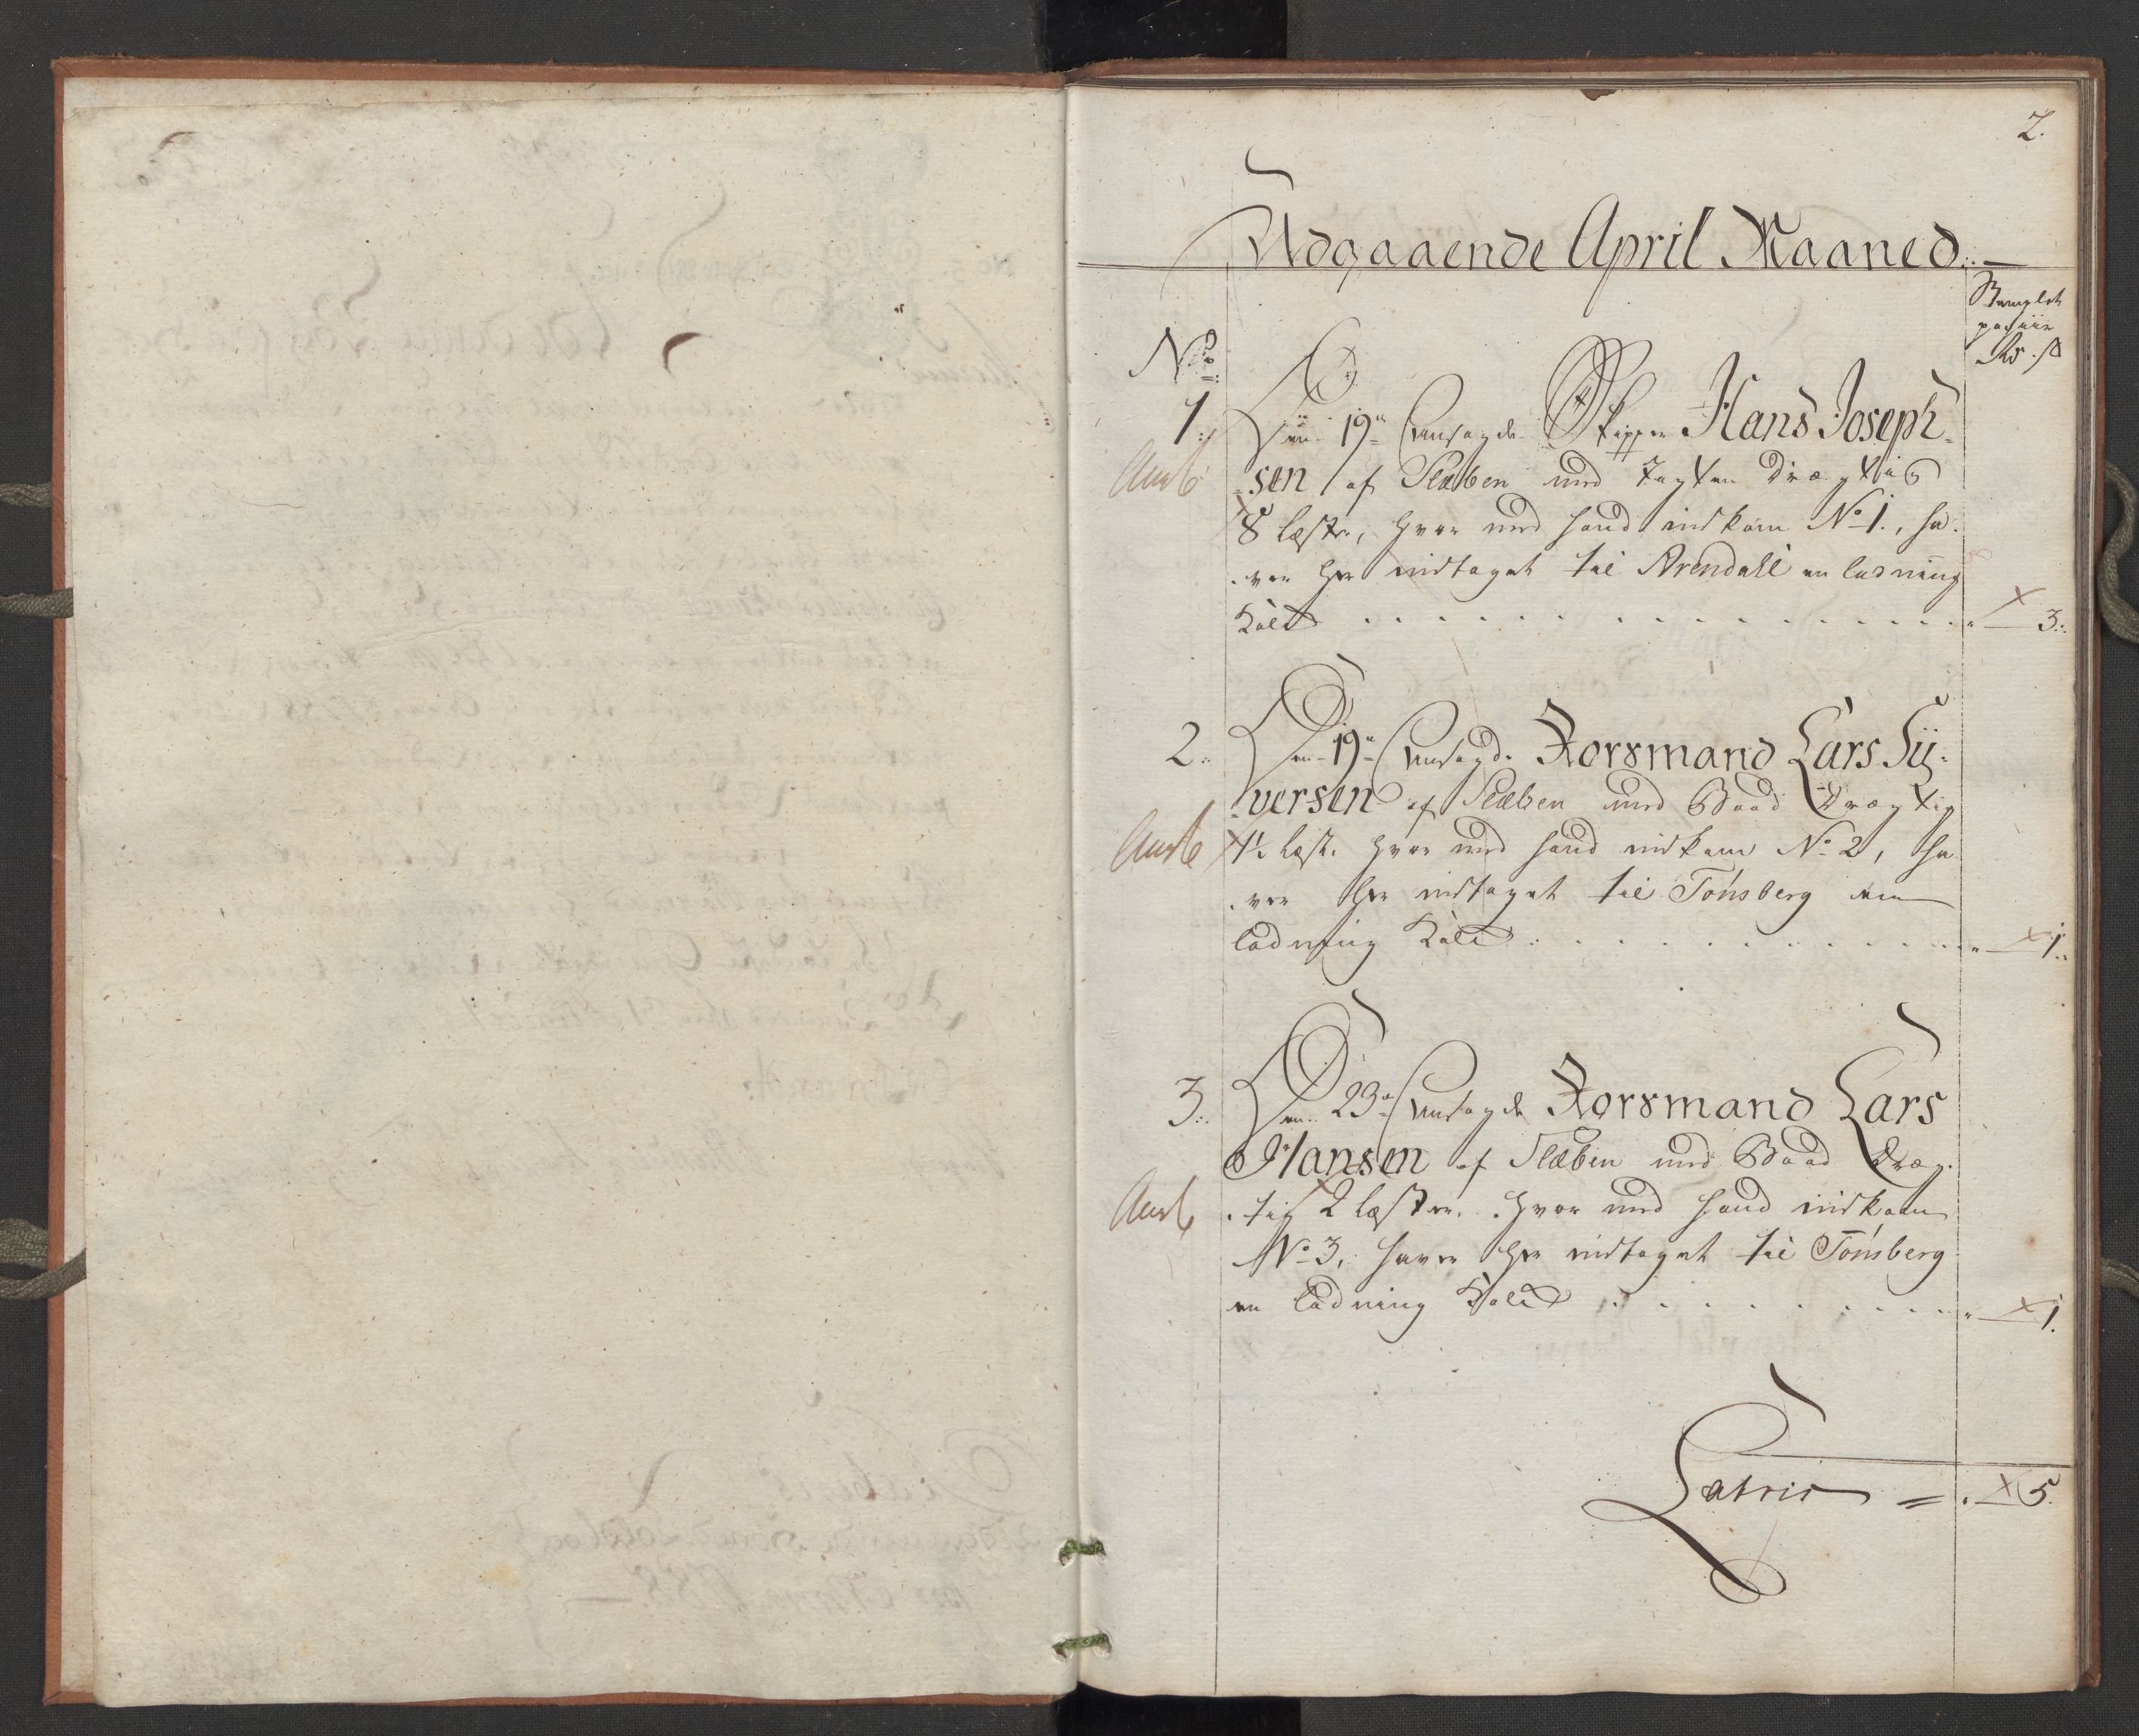 2.
Udgaaende April Maaned
Stemplet
papiir
Rd. s
No
1. Den 19de Ansagde Skipper Hans Joseph-
sen af Slæben med Jagten drægtig
8 læster, hvor med hand indkom No 1., ha-
ver her indtaget til Arendall en ladning
Kald . . . 3.
2. Den 19de Ansagde Forsmand Lars Sÿ-
versen af Slæben med Baad drægtig
1½ læst. hvor med hand indkom No 2, ha-
ver her indtaget til Tønsberg een
ladning Kald . . . 1.
3. Den 23de Ansagde Forsmand Lars
Hansen af Slæben med Baad dræg-
tig 2 læster. hvor med hand indkom
No 3, haver her indtaget til Tønsberg
en ladning Kald . . . 1.
Latris = 5.